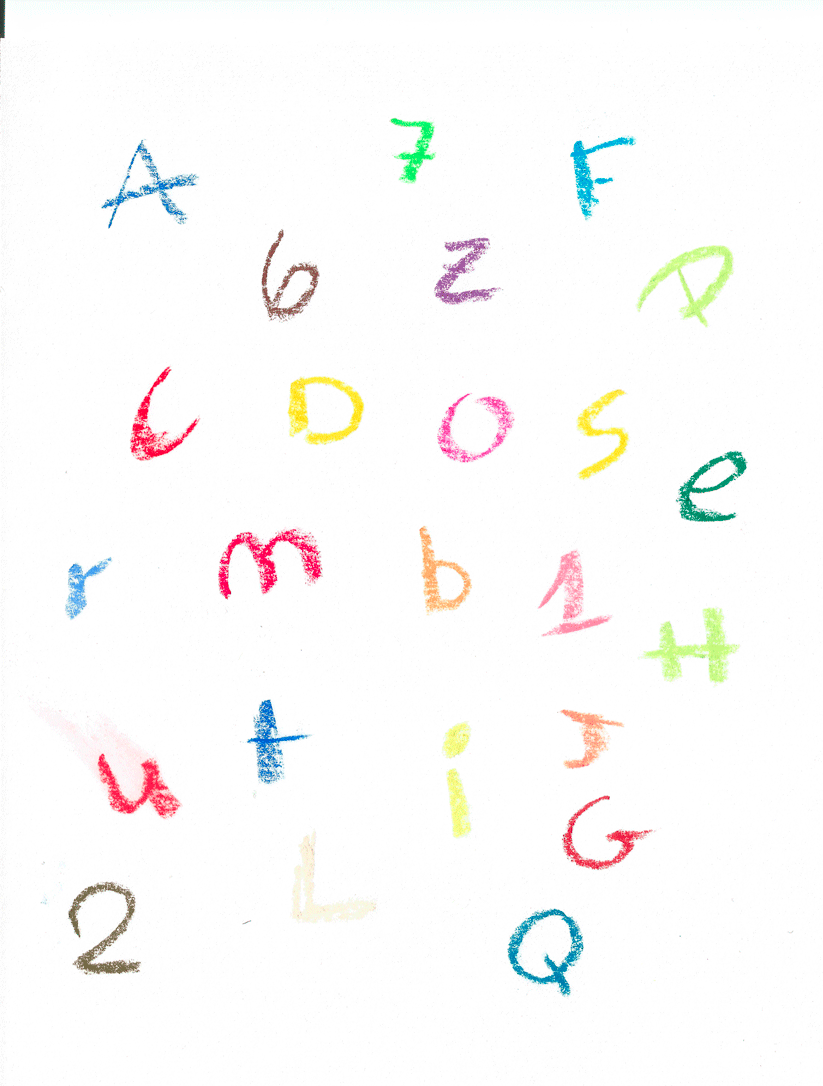 A 7 F
6 Z P
C D O S
e
r m b 1
H
u t i J
G
2 L Q